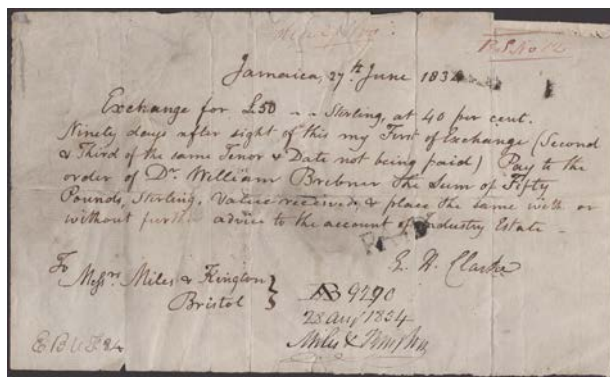 B.S. No 12
Jamaica, 27th June 1834
Exchange for £50 - - Sterling, at 40 per cent.
Ninety days after sight of this my First of Exchange (Second
& Third of the same Tenor & Date not being paid) Pay to the
order of Dr. William Brebner the Sum of Fifty
Pounds, Sterling, Value received, & place the same with or
without further advice to the account of Industry Estate -
E. H. Clarke
To
Messrs. Miles & Kington
Bristol
9290
28 Aug 1834
Miles &